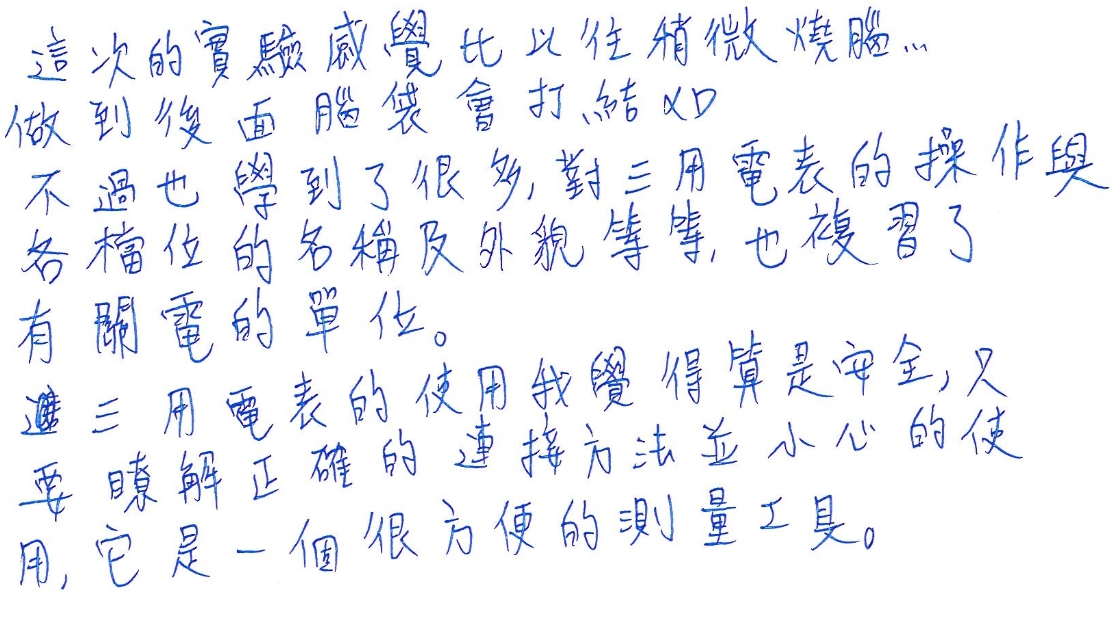 這次的實驗感覺比以往稍微燒腦...
做到後面腦袋會打結XD
不過也學到了很多,對三用電表的操作與
各檔位的名稱及外貌等等,也複習了
有關電的單位。
三用電表的使用我覺得算是安全,只
要瞭解正確的連接方法並小心的使
用,它是一個很方便的測量工具。